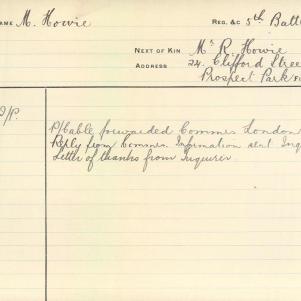 NAME M. Howie
REG. &C 5th Batt
NEXT OF KIN Mr R Howie
ADDRESS 24. Clifford Stree
Prospect Park
P/Cable forwarded Commrs London
Reply from Commrs. Information sent Inq
Letter of thanks from Inquirer.